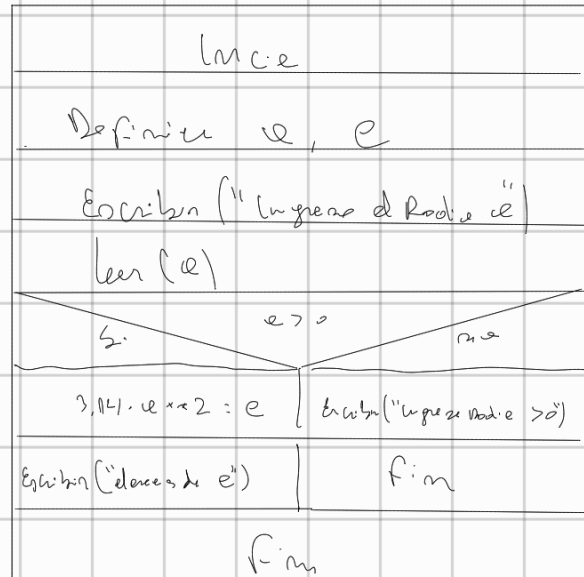 Inicio
Definir e, e
Escribir ("Ingrese el Radio e")
Leer (e)
e > 0
Si
no
3,141 . e ** 2 = e
Escribir ("Ingrese Radio > 0")
Escribir ("el area es de e")
Fin
Fin